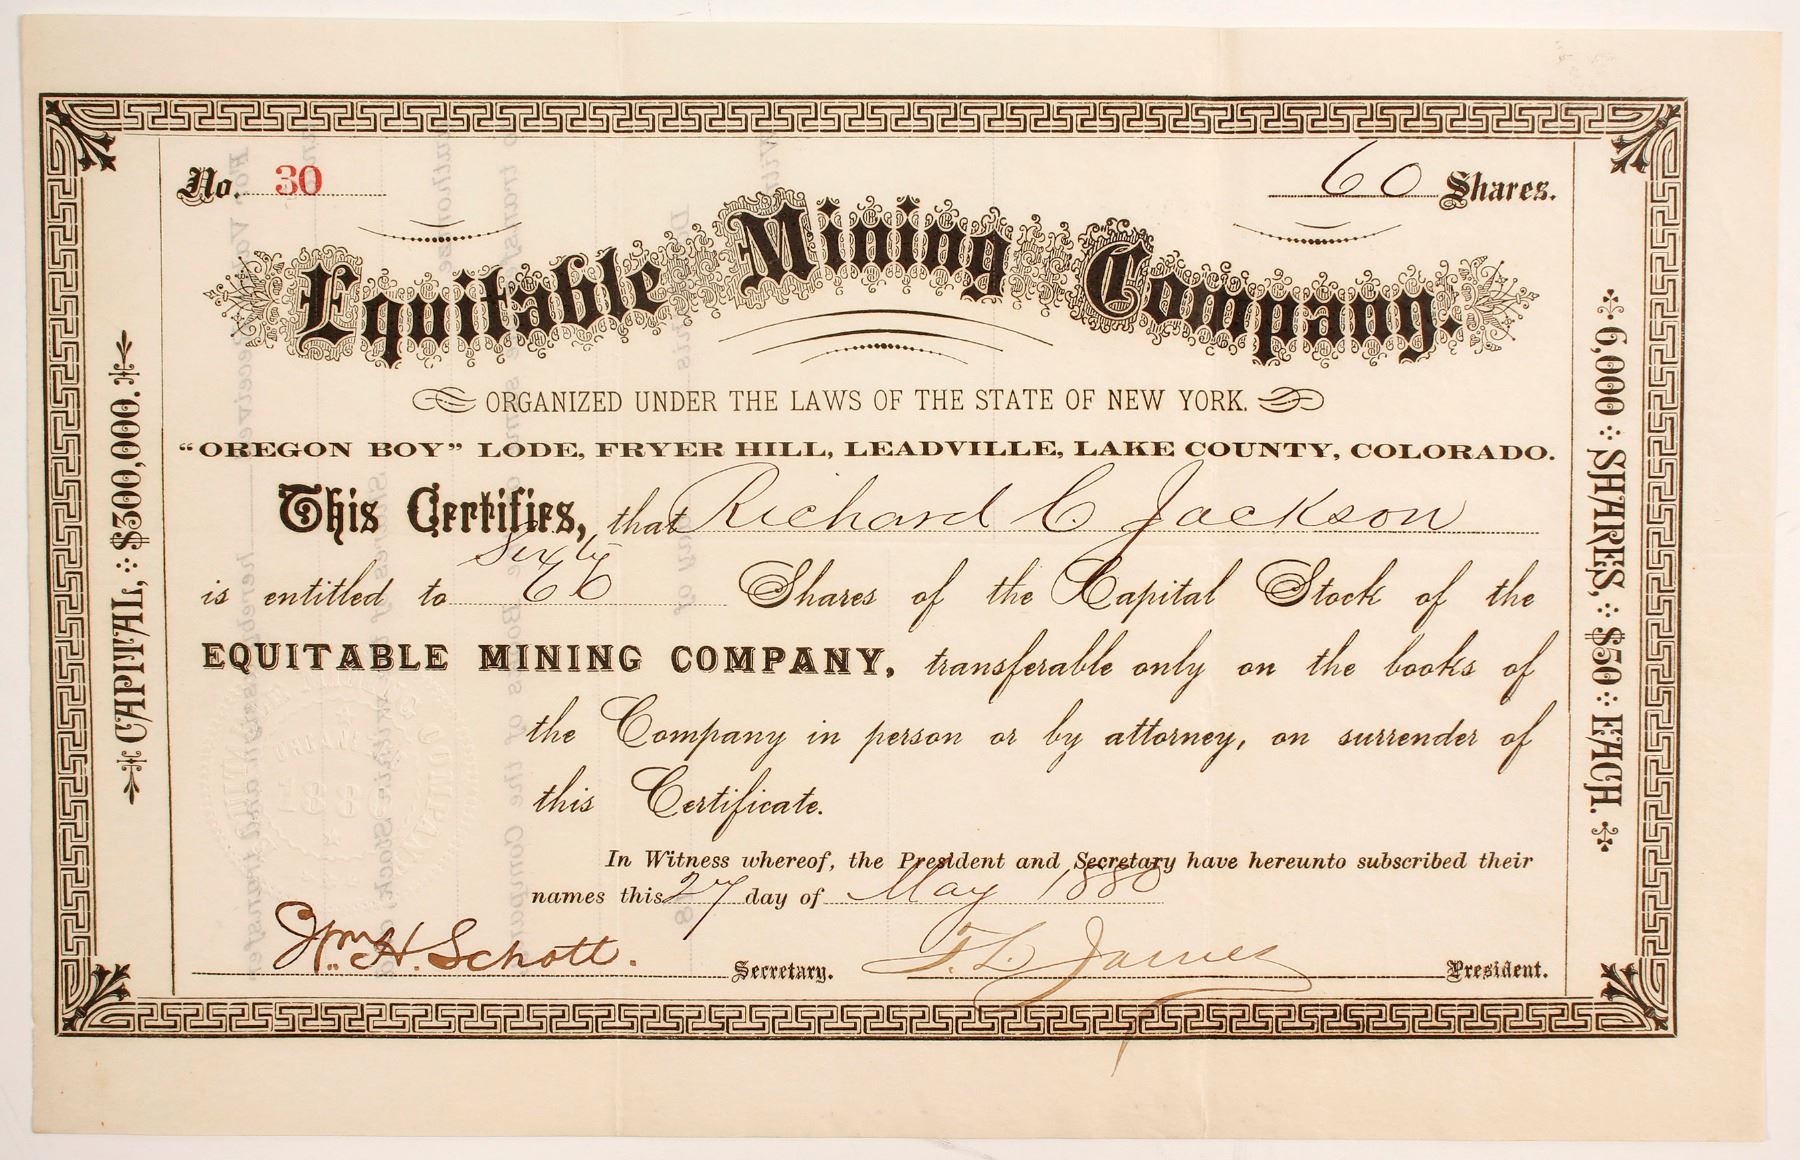 No. 30
60 Shares.
Equitable Mining Company.
ORGANIZED UNDER THE LAWS OF THE STATE OF NEW YORK.
"OREGON BOY" LODE, FRYER HILL, LEADVILLE, LAKE COUNTY, COLORADO.
This Certifies, that Richard C. Jackson
Sixty
is entitled to Shares of the Capital Stock of the
EQUITABLE MINING COMPANY, transferable only on the books of
the Company in person or by attorney, on surrender of
this Certificate.
In Witness whereof, the President and Secretary have hereunto subscribed their
names this 27 day of May 1880
Wm. H. Schott. Secretary. F. L. James President.
CAPITAL, $300,000.
6,000 SHARES, $50 EACH.